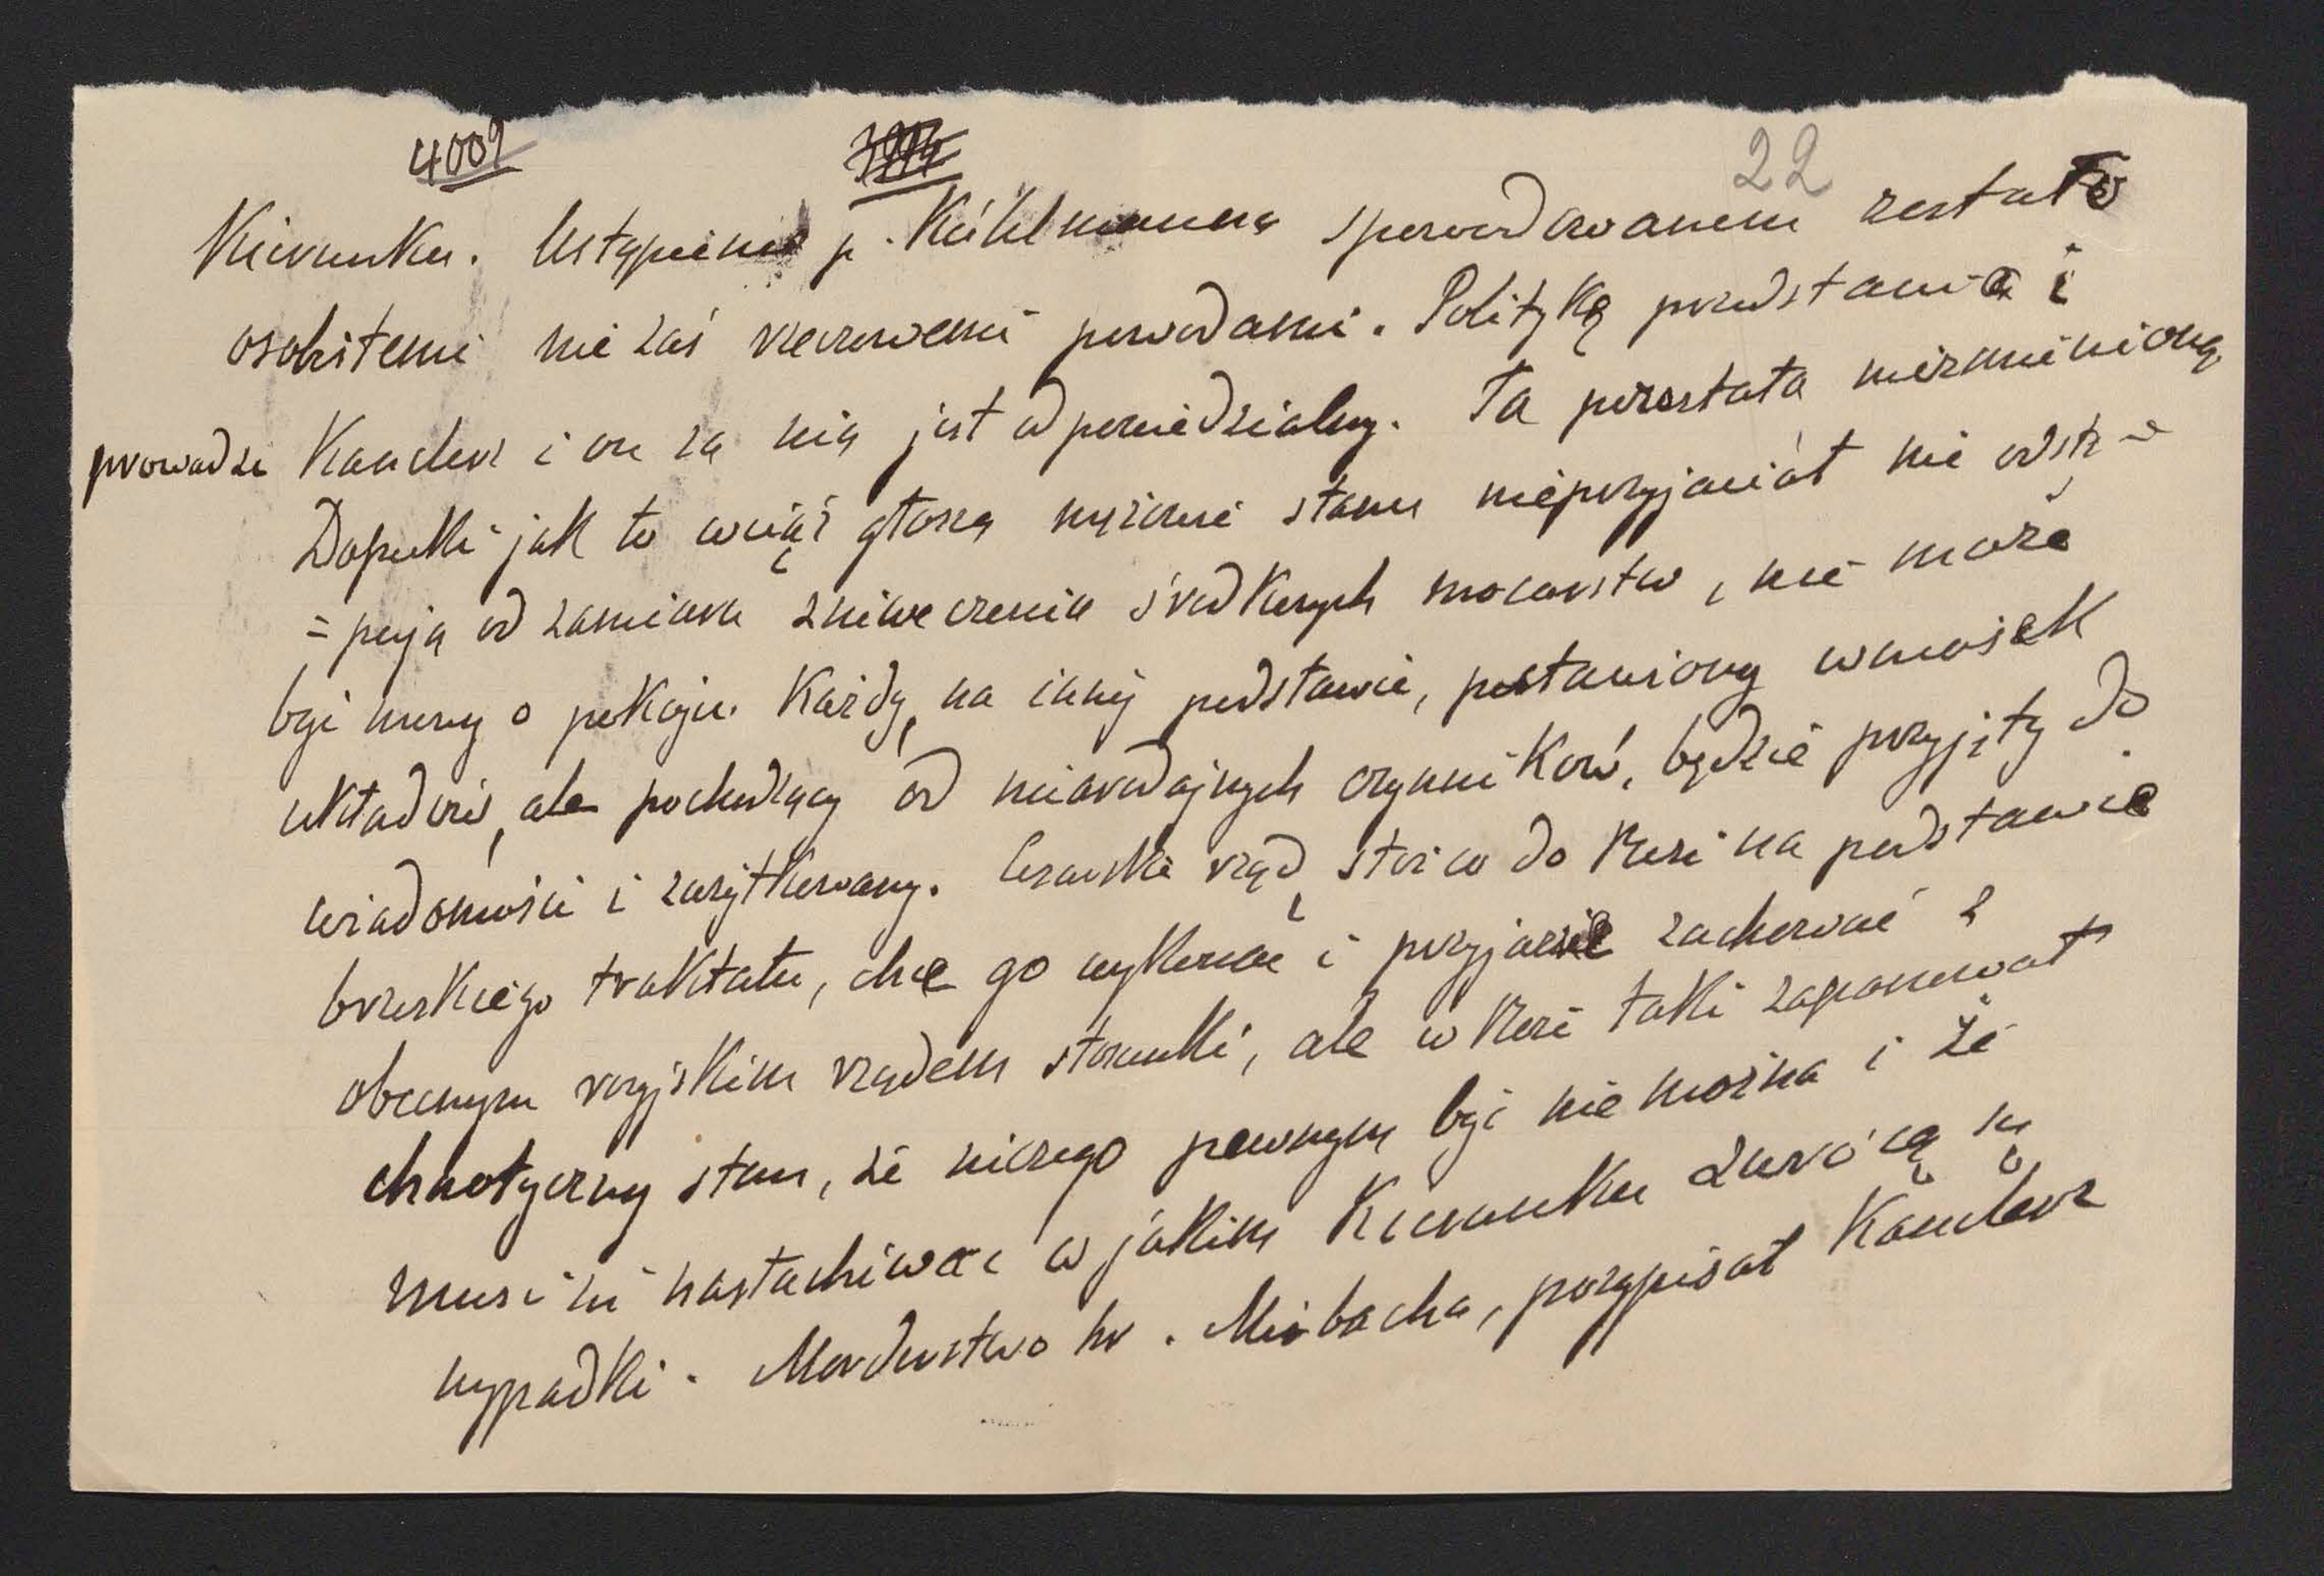 4009 3994 22
Kierunku. Ustąpienie p. Kühlmanna spowodowanem zostało
osobistemi nie zaś rzeczowemi powodami. Politykę przedstawia i
prowadzi Kanclerz i on za nią jest odpowiedzialny. Ta pozostała niezmienioną.
Dopulki jak to wciąż głoszą mężowie stanu nieprzyjaciół nie odstę-
=pują od zamiaru zniweczenia środkowych mocarstw, nie może
być mowy o pokoju. Każdy, na innej podstawie, postawiony wniosek
układów, ale pochodzący od miarodajnych czynników, będzie przyjęty do
wiadomości i zużytkowany. Cesarski rząd, stoi co do Rosi na podstawie
brzeskiego traktatu, chce go wykonać i przyjazne zachować z
obecnym rosyjskim rządem stosunki, ale w Rosi taki zapanował
chaotyczny stan, że niczego pewnym być nie można i że
musi się nasłuchiwać w jakim kierunku zwrócą się
wypadki. Morderstwo hr. Mirbacha, przypisał Kanclerz